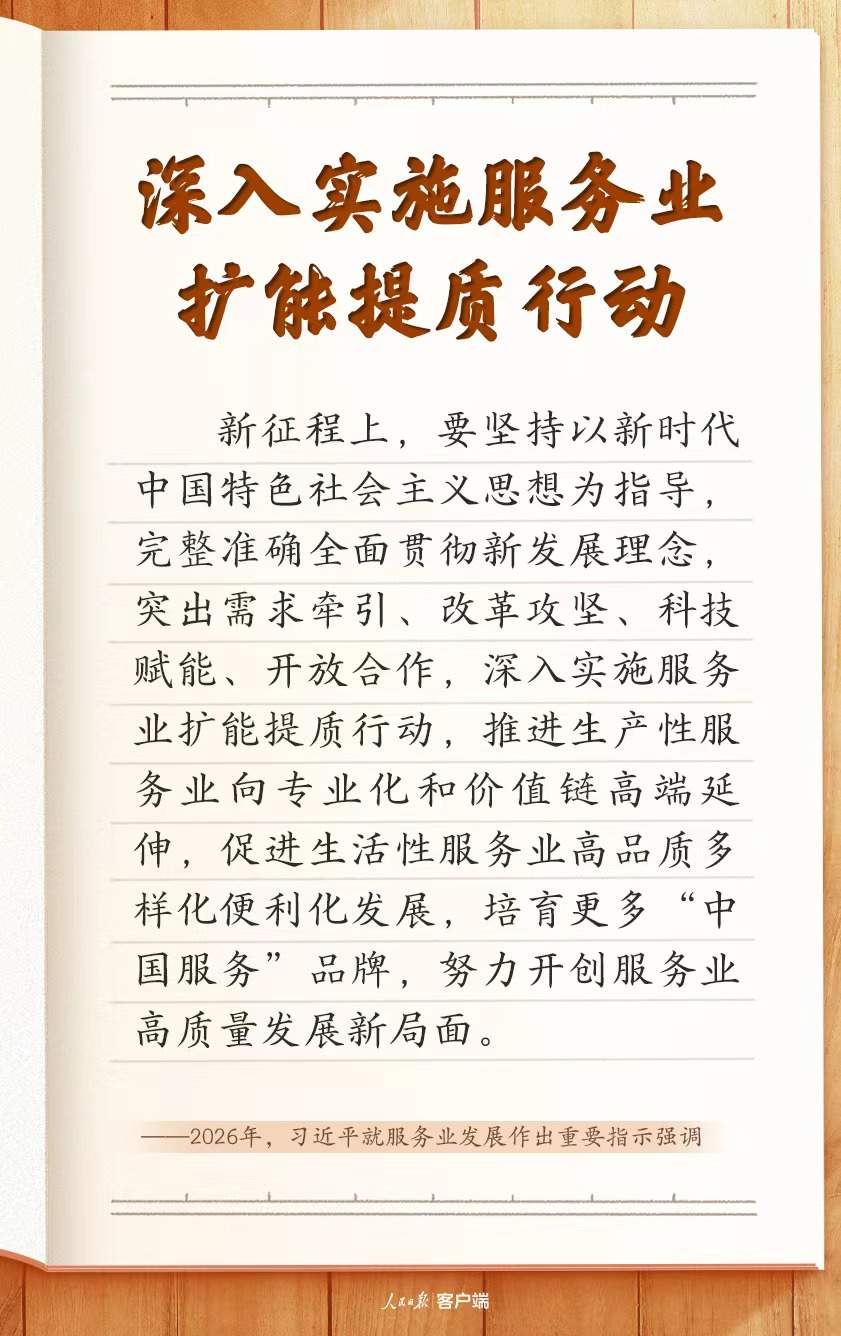 深入实施服务业
扩能提质行动
新征程上，要坚持以新时代
中国特色社会主义思想为指导，
完整准确全面贯彻新发展理念，
突出需求牵引、改革攻坚、科技
赋能、开放合作，深入实施服务
业扩能提质行动，推进生产性服
务业向专业化和价值链高端延
伸，促进生活性服务业高品质多
样化便利化发展，培育更多“中
国服务”品牌，努力开创服务业
高质量发展新局面。
——2026年，习近平就服务业发展作出重要指示强调
人民日报 客户端